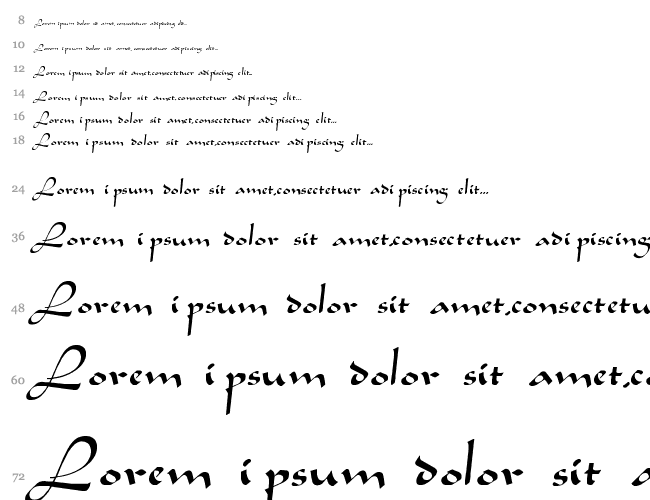 8 Lorem ipsum dolor sit amet, consectetuer adipiscing elit...
10 Lorem ipsum dolor sit amet, consectetuer adipiscing elit...
12 Lorem ipsum dolor sit amet,consectetuer adipiscing elit...
14 Lorem ipsum dolor sit amet,consectetuer adipiscing elit...
16 Lorem ipsum dolor sit amet,consectetuer adipiscing elit...
18 Lorem ipsum dolor sit amet,consectetuer adipiscing elit...
24 Lorem ipsum dolor sit amet,consectetuer adipiscing elit...
36 Lorem ipsum dolor sit amet,consectetuer adipiscing
48 Lorem ipsum dolor sit amet,consectetu
60 Lorem ipsum dolor sit amet,c
72 Lorem ipsum dolor sit a